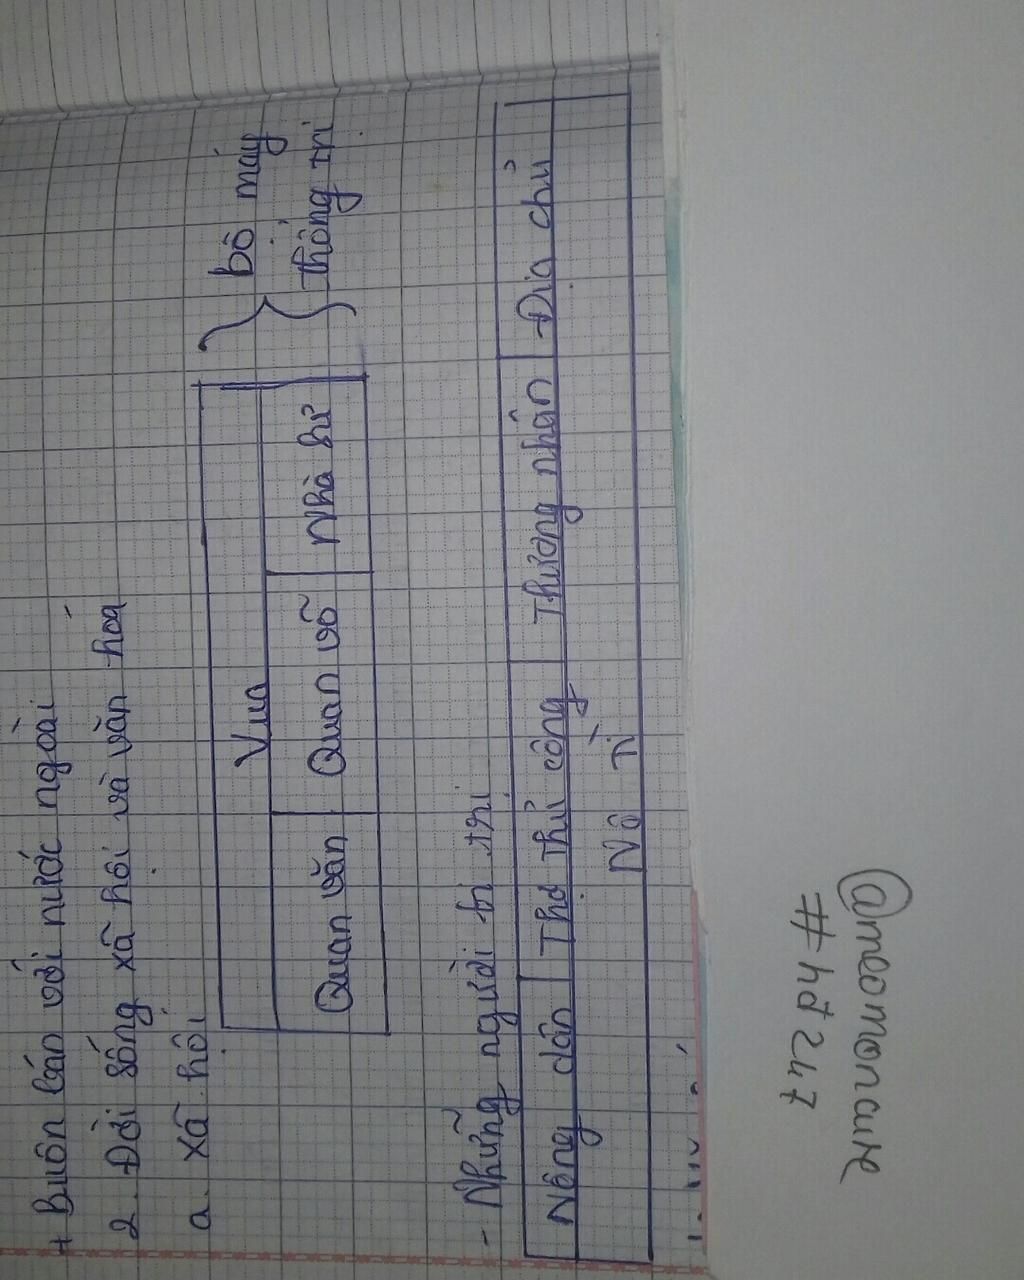 + Buôn bán với nước ngoài
2. Đời sống xã hội và văn hoá
a. xã hội
Vua
Quan văn Quan võ Nhà sư
bộ máy
thống trị
- Những người bị trị
Nông dân Thợ thủ công Thương nhân Địa chủ
Nô tì
@meomonare
#hđ247